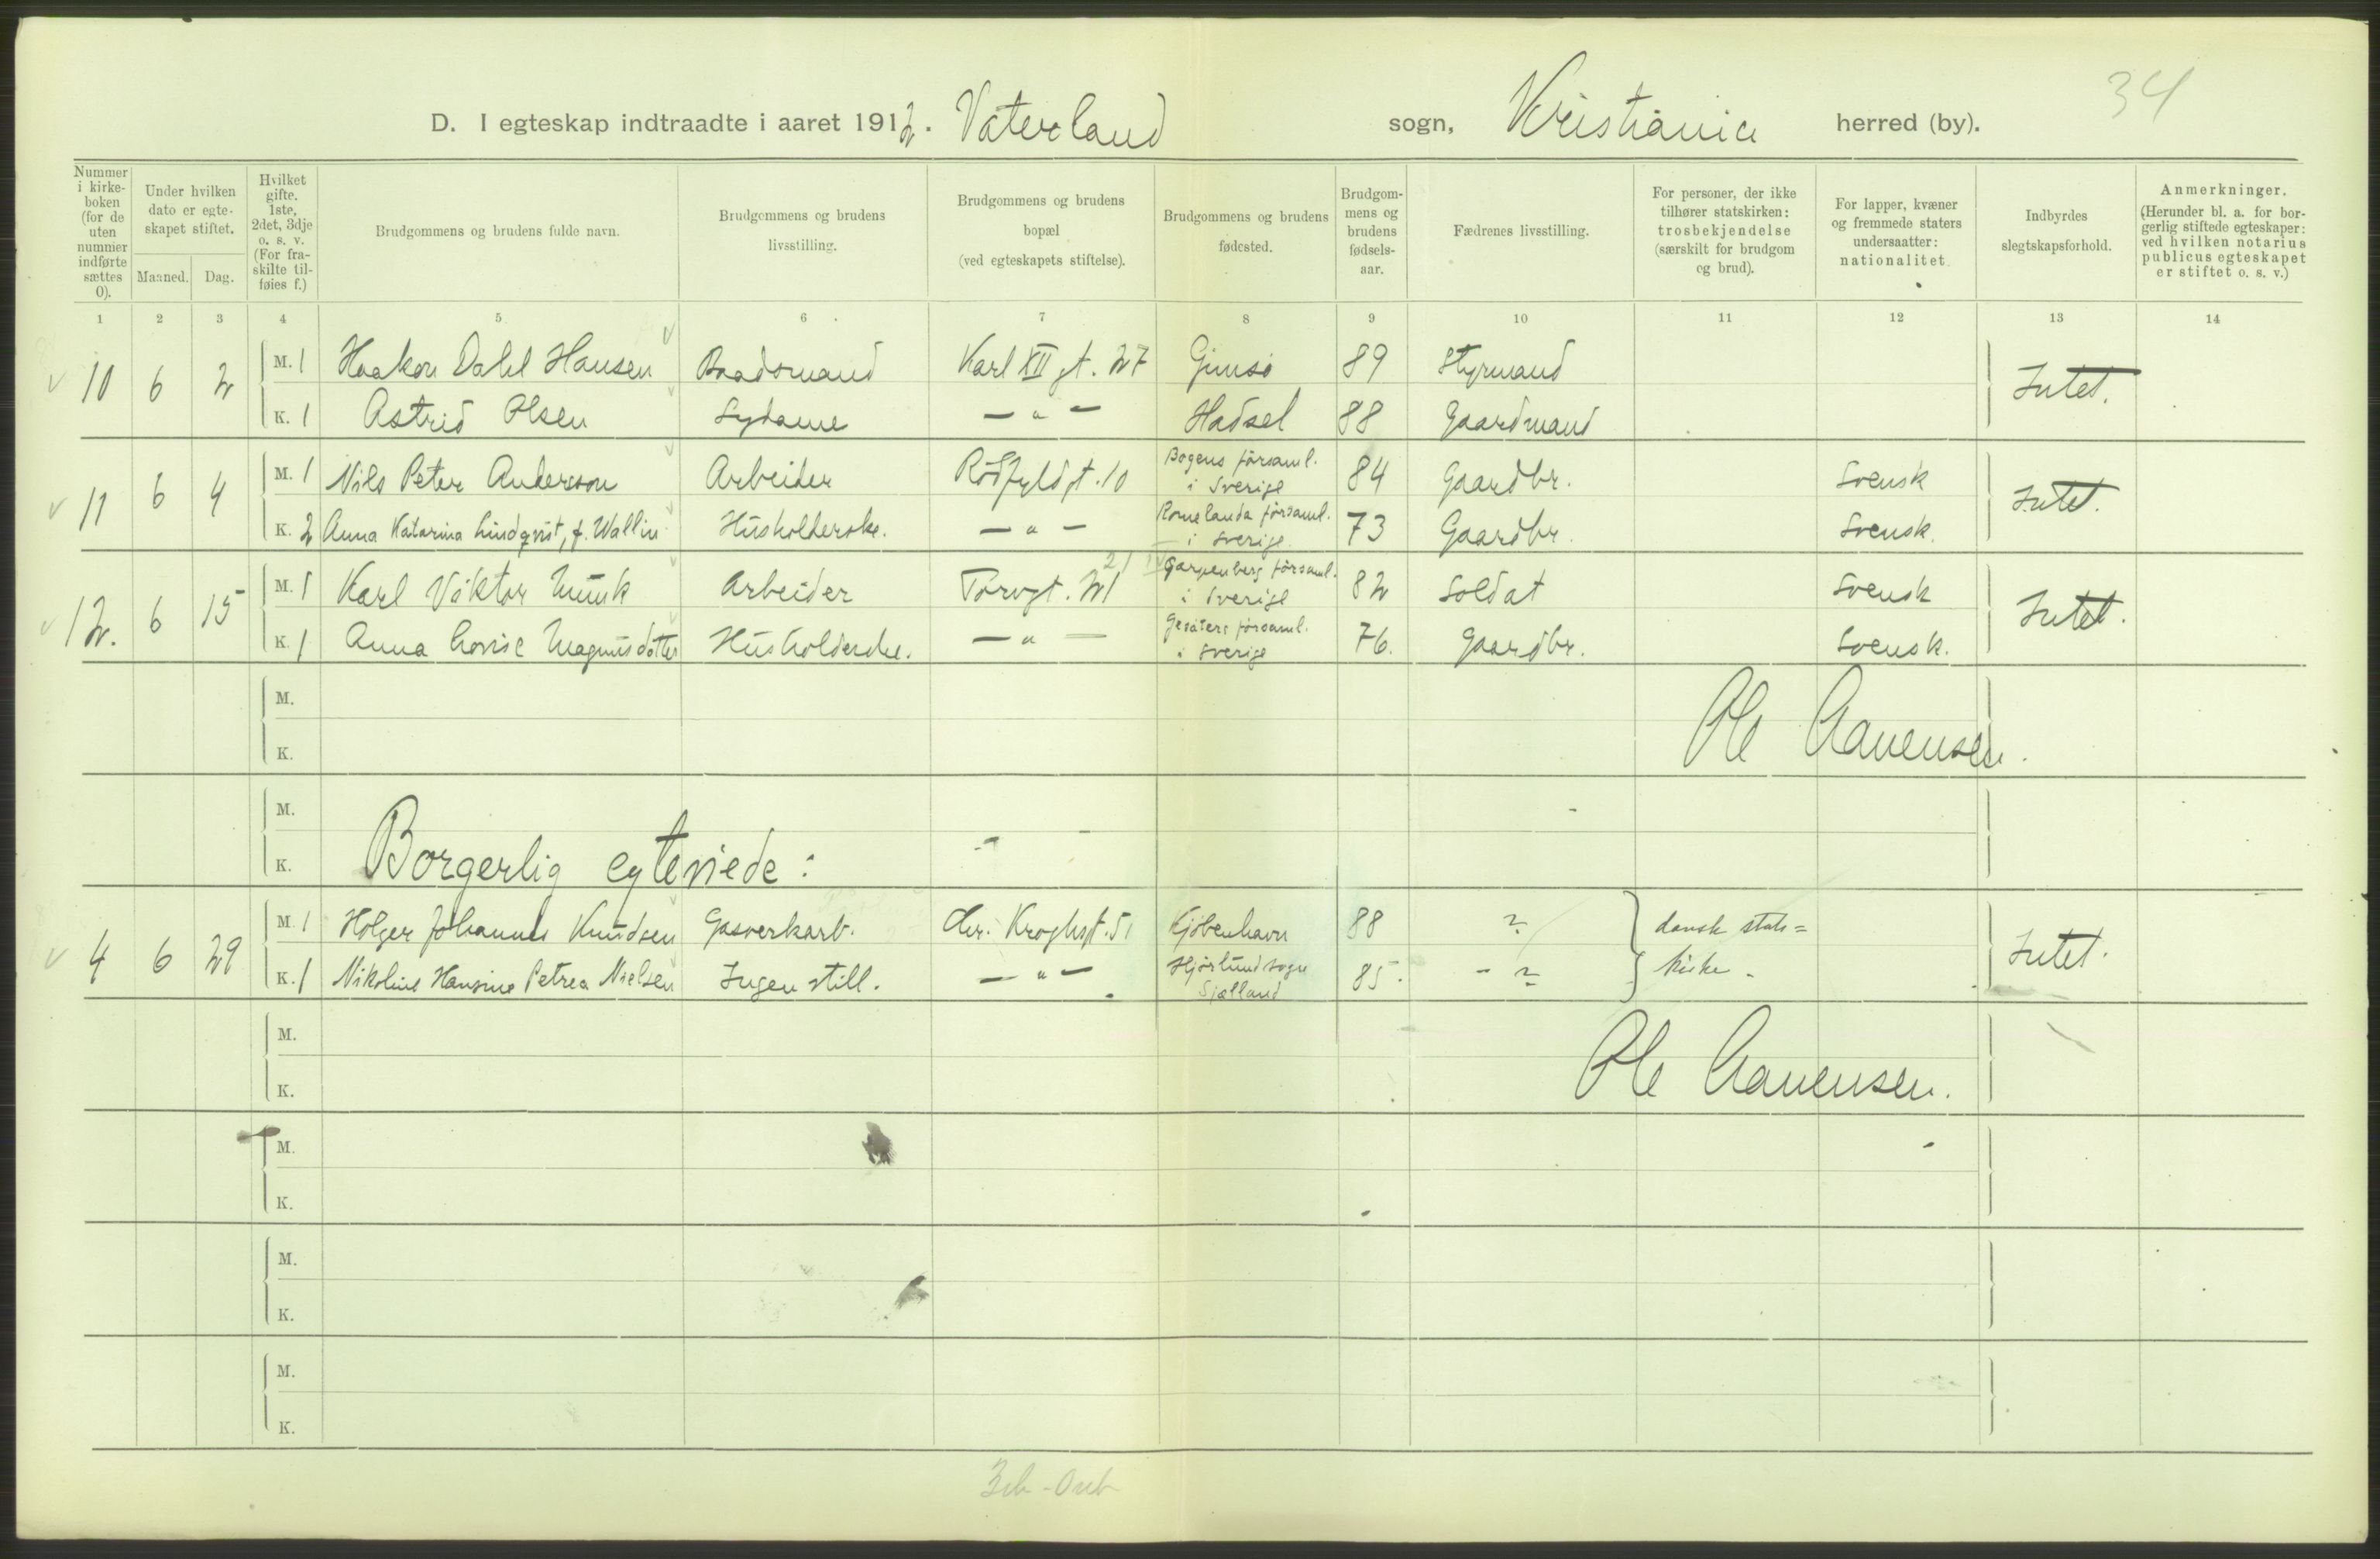 34
D. I egteskap indtraadte i aaret 1912. Vaterland sogn, Kristiania herred (by).
Nummer i kirke-boken (for de uten nummer indførte sættes 0).
Under hvilken dato er egte-skapet stiftet.
Maaned. Dag.
Hvilket gifte. 1ste, 2det, 3dje o. s. v. (For fra-skilte til-føies f.)
Brudgommens og brudens fulde navn.
Brudgommens og brudens livsstilling.
Brudgommens og brudens bopæl (ved egteskapets stiftelse).
Brudgommens og brudens fødested.
Brudgom-mens og brudens fødsels-aar.
Fædrenes livsstilling.
For personer, der ikke tilhører statskirken: trosbekjendelse (særskilt for brudgom og brud).
For lapper, kvæner og fremmede staters undersaatter: nationalitet
Indbyrdes slegtskapsforhold.
Anmerkninger. (Herunder bl. a. for bor-gerlig stiftede egteskaper: ved hvilken notarius publicus egteskapet er stiftet o. s. v.)
1 2 3 4 5 6 7 8 9 10 11 12 13 14
10 6 2 M. 1 Haakon Dahl Hansen Baadsmand Karl XII gt. 27 Gimsø 89 Styrmand Intet.
K. 1 Astrid Olsen Sydame — " — Hadsel 88 Gaardmand
11 6 4 M. 1 Nils Peter Andersson Arbeider Rødfyldgt. 10 Bogens församl. i Sverige 84 Gaardbr. Svensk Intet.
K. 2 Anna Katarina Lindqvist, f. Wallin Husholderske. — " — Romelanda församl. i Sverige 73 Gaardbr. Svensk.
12. 6 15 M. 1 Karl Viktor Munk Arbeider Torvgt. 21 21 Garpenberg församl. i Sverige 82 Soldat Svensk Intet.
K. 1 Anna Lovise Magnusdotter Husholderske. — " — Gesäters församl. i Sverige 76. Gaardbr. Svensk.
M.
K.
Ole Aanensen.
M.
K. Borgerlig egteviede:
4 6 29 M. 1 Holger Johannes Knudsen Gasverkarb. Chr. Kroghsgt. 51 Kjöbenhavn 88 ? dansk stats= Intet.
K. 1 Nikoline Hansine Petrea Nielsen Ingen still. — " — Hjørlund sogn Sjælland 85. - ? kirke -
M.
K.
Ole Aanensen.
M.
K.
M.
K.
M.
K.